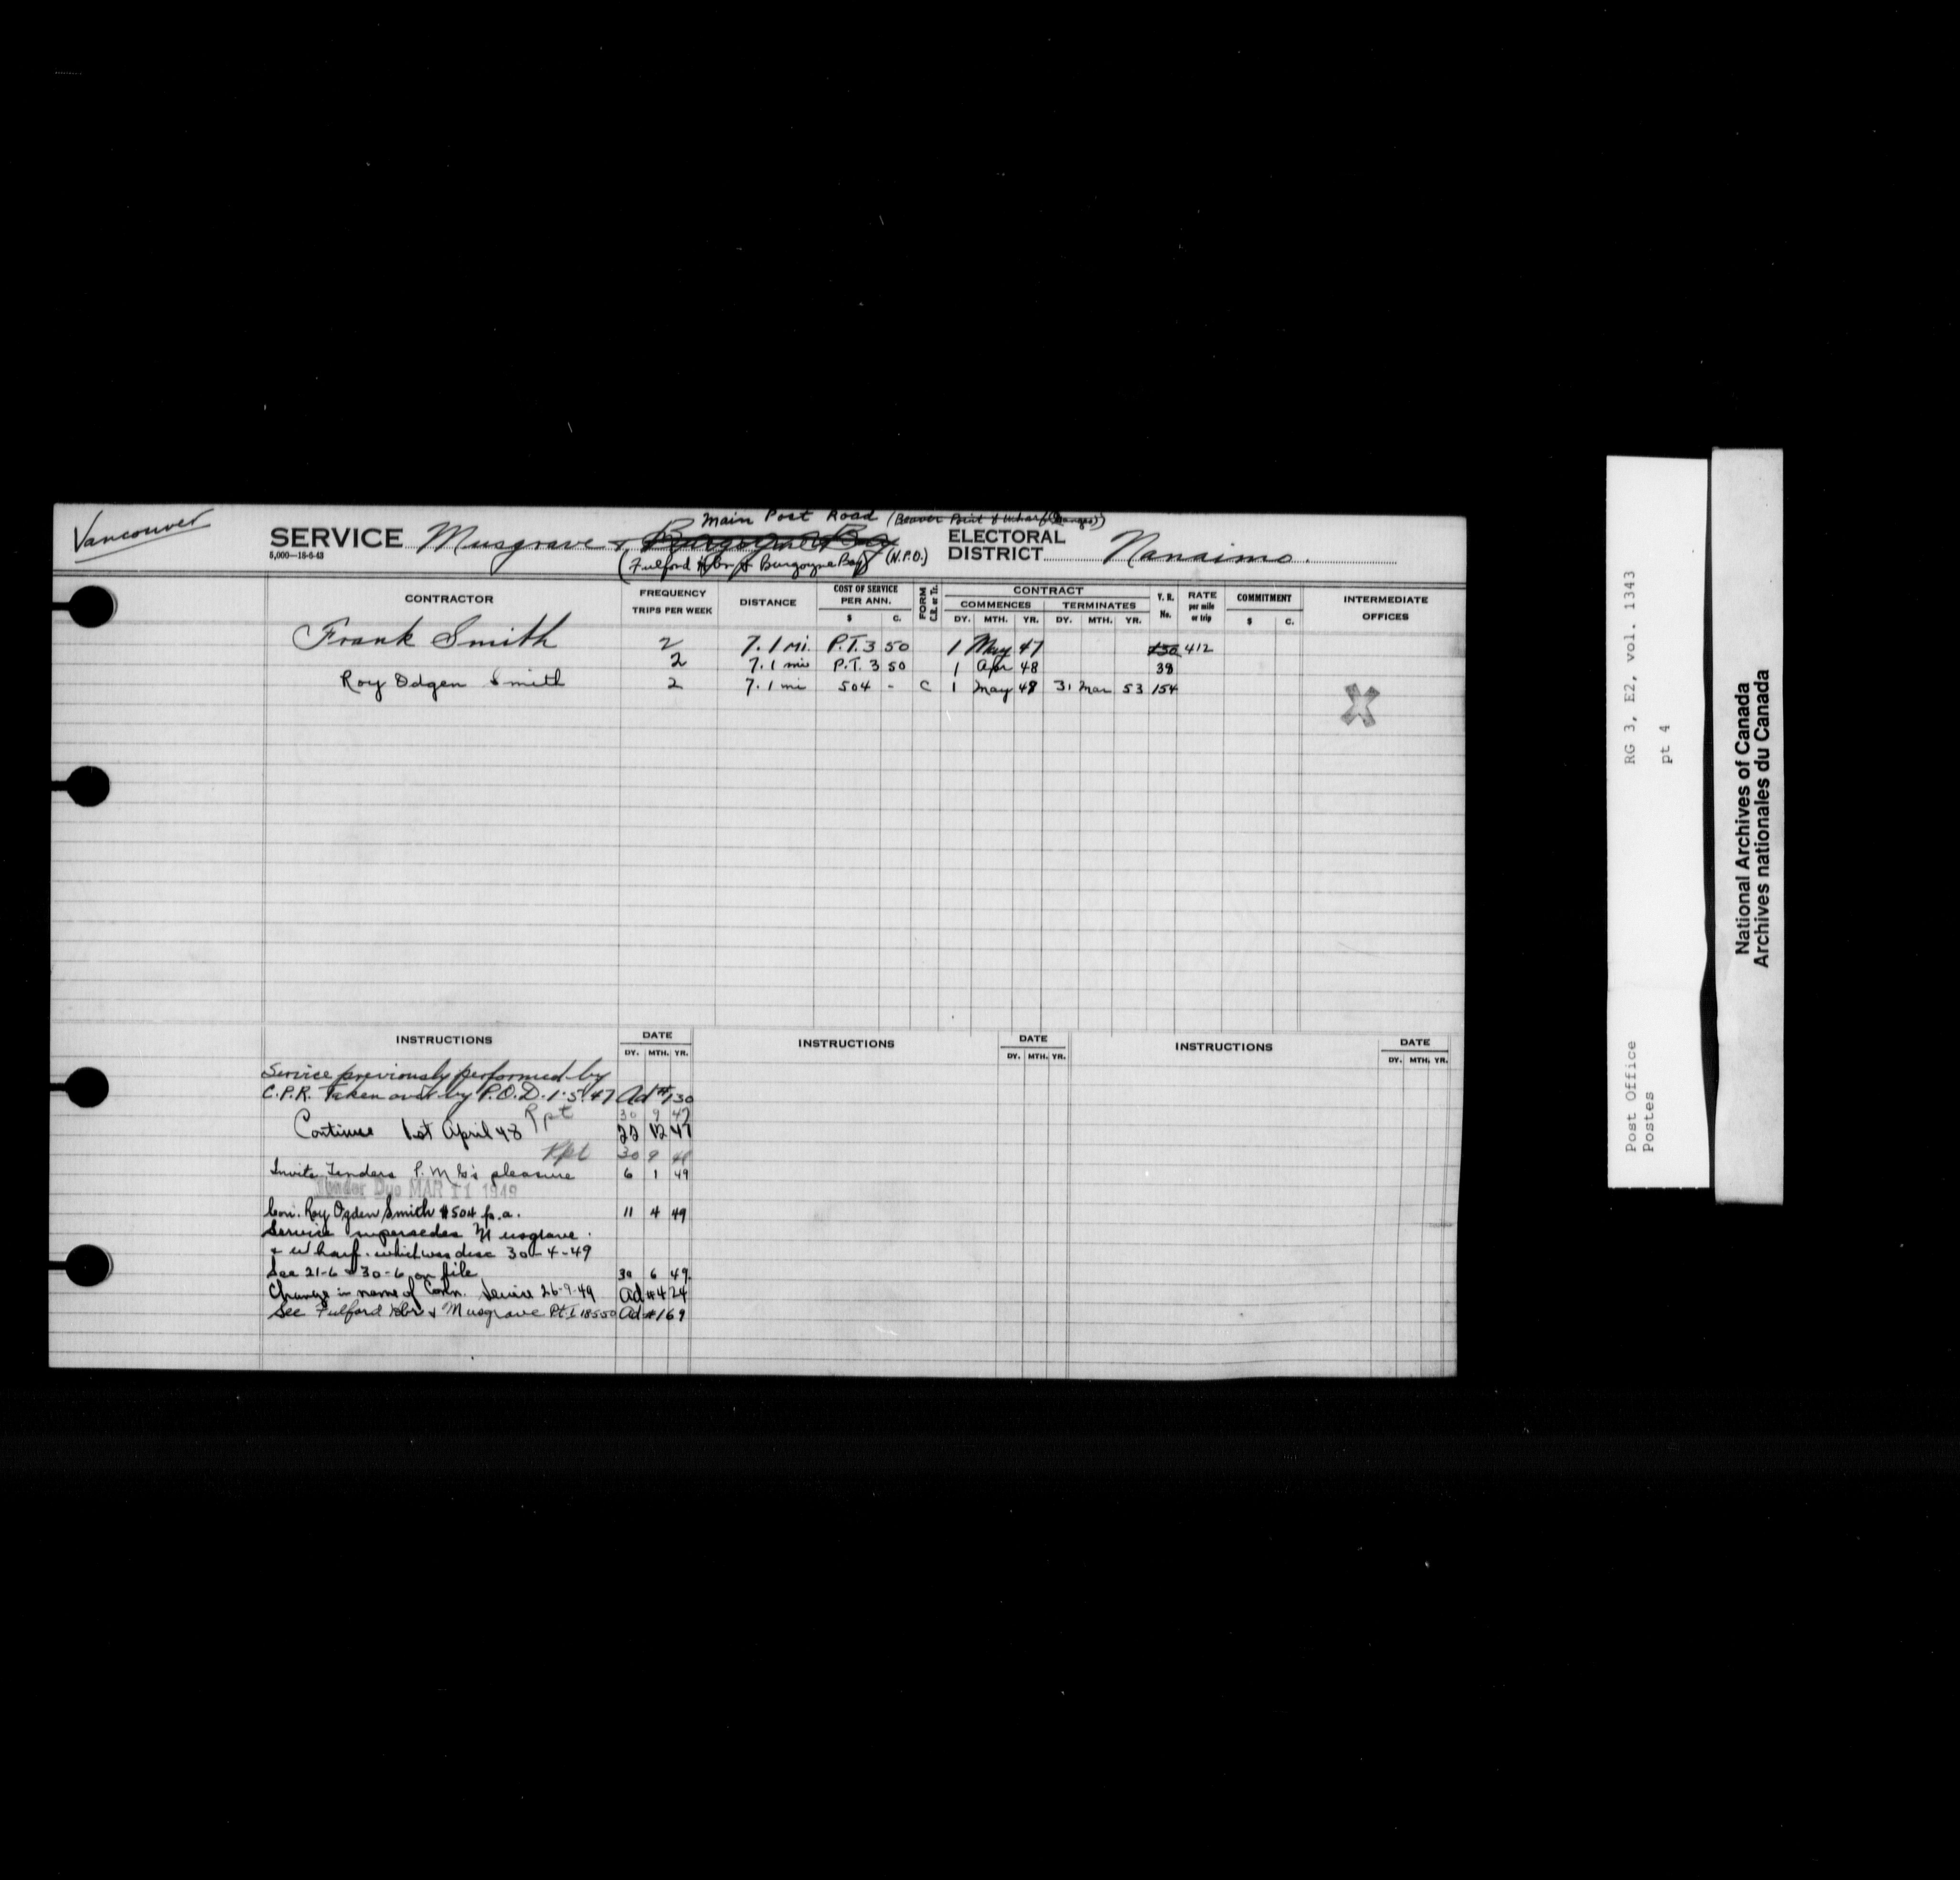 Vancouver
Main Post Road (Beaver Point & Wharf (Ganges))
SERVICE Musgrave & Burgoyne Bay
5,000—18-6-43
(Fulford Hbr & Burgoyne Bay) (N.P.O.)
ELECTORAL DISTRICT Nanaimo.
CONTRACTOR FREQUENCY TRIPS PER WEEK DISTANCE COST OF SERVICE PER ANN. $ C. FORM C.R. or Tr. CONTRACT COMMENCES DY. MTH. YR. TERMINATES DY. MTH. YR. Y.R. No. RATE per mile or trip COMMITMENT $ C. INTERMEDIATE OFFICES
Frank Smith 2 7.1 mi. P.T. 3 50 1 May 47 130 412
2 7.1 mi P.T. 3 50 1 Apr 48 38
Roy Odgen Smith 2 7.1 mi 504 - C 1 May 49 31 Mar 53 154
X
INSTRUCTIONS DATE DY. MTH. YR. INSTRUCTIONS DATE DY. MTH. YR. INSTRUCTIONS DATE DY. MTH. YR.
Service previously performed by
C.P.R. Taken over by P.O.D. 1.5.47 Ad #130
Rpt 30 9 47
Continue 1st April 48 22 12 47
Rpt 30 9 48
Invite Tenders P.M.G's pleasure 6 1 49
Tender Due MAR 11 1949
Con. Roy Ogden Smith $504 p.a. 11 4 49
Service supersedes Musgrave
& Wharf. which was disc 30-4-49
See 21-6 & 30-6 on file 30 6 49.
Change in name of Contn. Service 26-9-49 Ad #424
See Fulford Hbr & Musgrave Pt. I 18550 Ad #169
RG 3, E2, vol. 1343
pt 4
Post Office
Postes
National Archives of Canada
Archives nationales du Canada